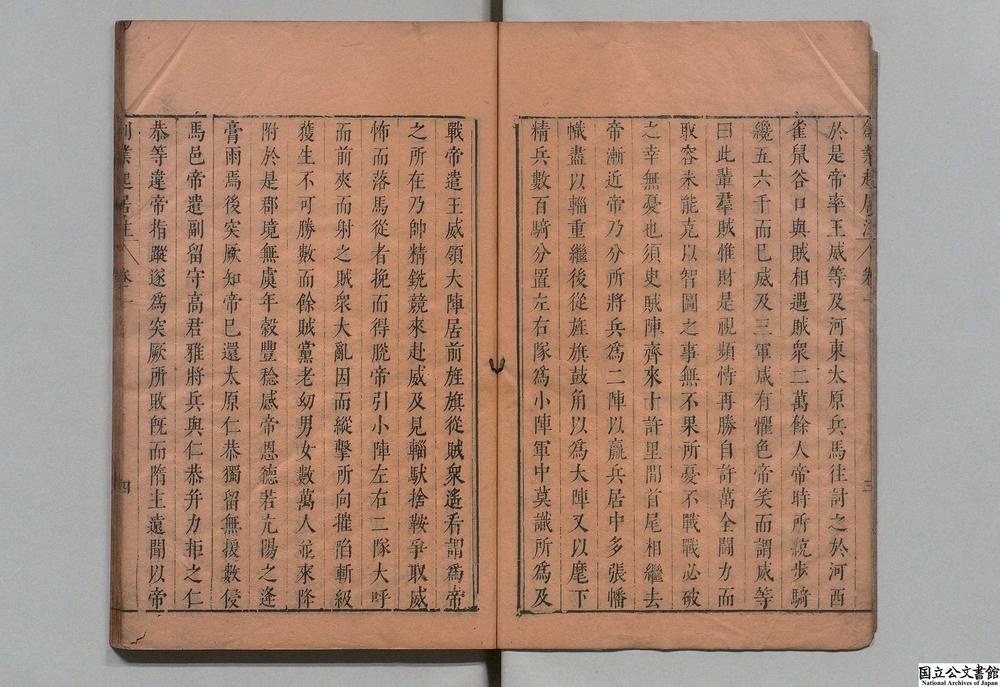 於是帝率王威等及河東太原兵馬往討之於河西
雀鼠谷口與賊相遇賊衆二萬餘人帝時所統步騎
纔五六千而已威及三軍咸有懼色帝笑而謂威等
曰此輩羣賊惟財是視頻恃再勝自許萬全鬭力而
取容未能克以智圖之事無不果所憂不戰戰必破
之幸無憂也須臾賊陣齊來十許里間首尾相繼去
帝漸近帝乃分所將兵爲二陣以羸兵居中多張幡
幟盡以輜重繼後從旌旗鼓角以爲大陣又以麾下
精兵數百騎分置左右隊爲小陣軍中莫識所爲及
三
戰帝遣王威領大陣居前旌旗從賊衆遙看謂爲帝
之所在乃帥精銳競來赴威及見輜馱捨鞍爭取威
怖而落馬從者挽而得脫帝引小陣左右二隊大呼
而前夾而射之賊衆大亂因而縱擊所向摧陷斬級
獲生不可勝數而餘賊黨老幼男女數萬人並來降
附於是郡境無虞年穀豐稔感帝恩德若亢陽之逢
膏雨焉後突厥知帝已還太原仁恭獨留無援數侵
馬邑帝遣副留守高君雅將兵與仁恭并力拒之仁
恭等違帝指蹤遂爲突厥所敗旣而隋主遠聞以帝
創業起居注 卷一 四
国立公文書館
National Archives of Japan